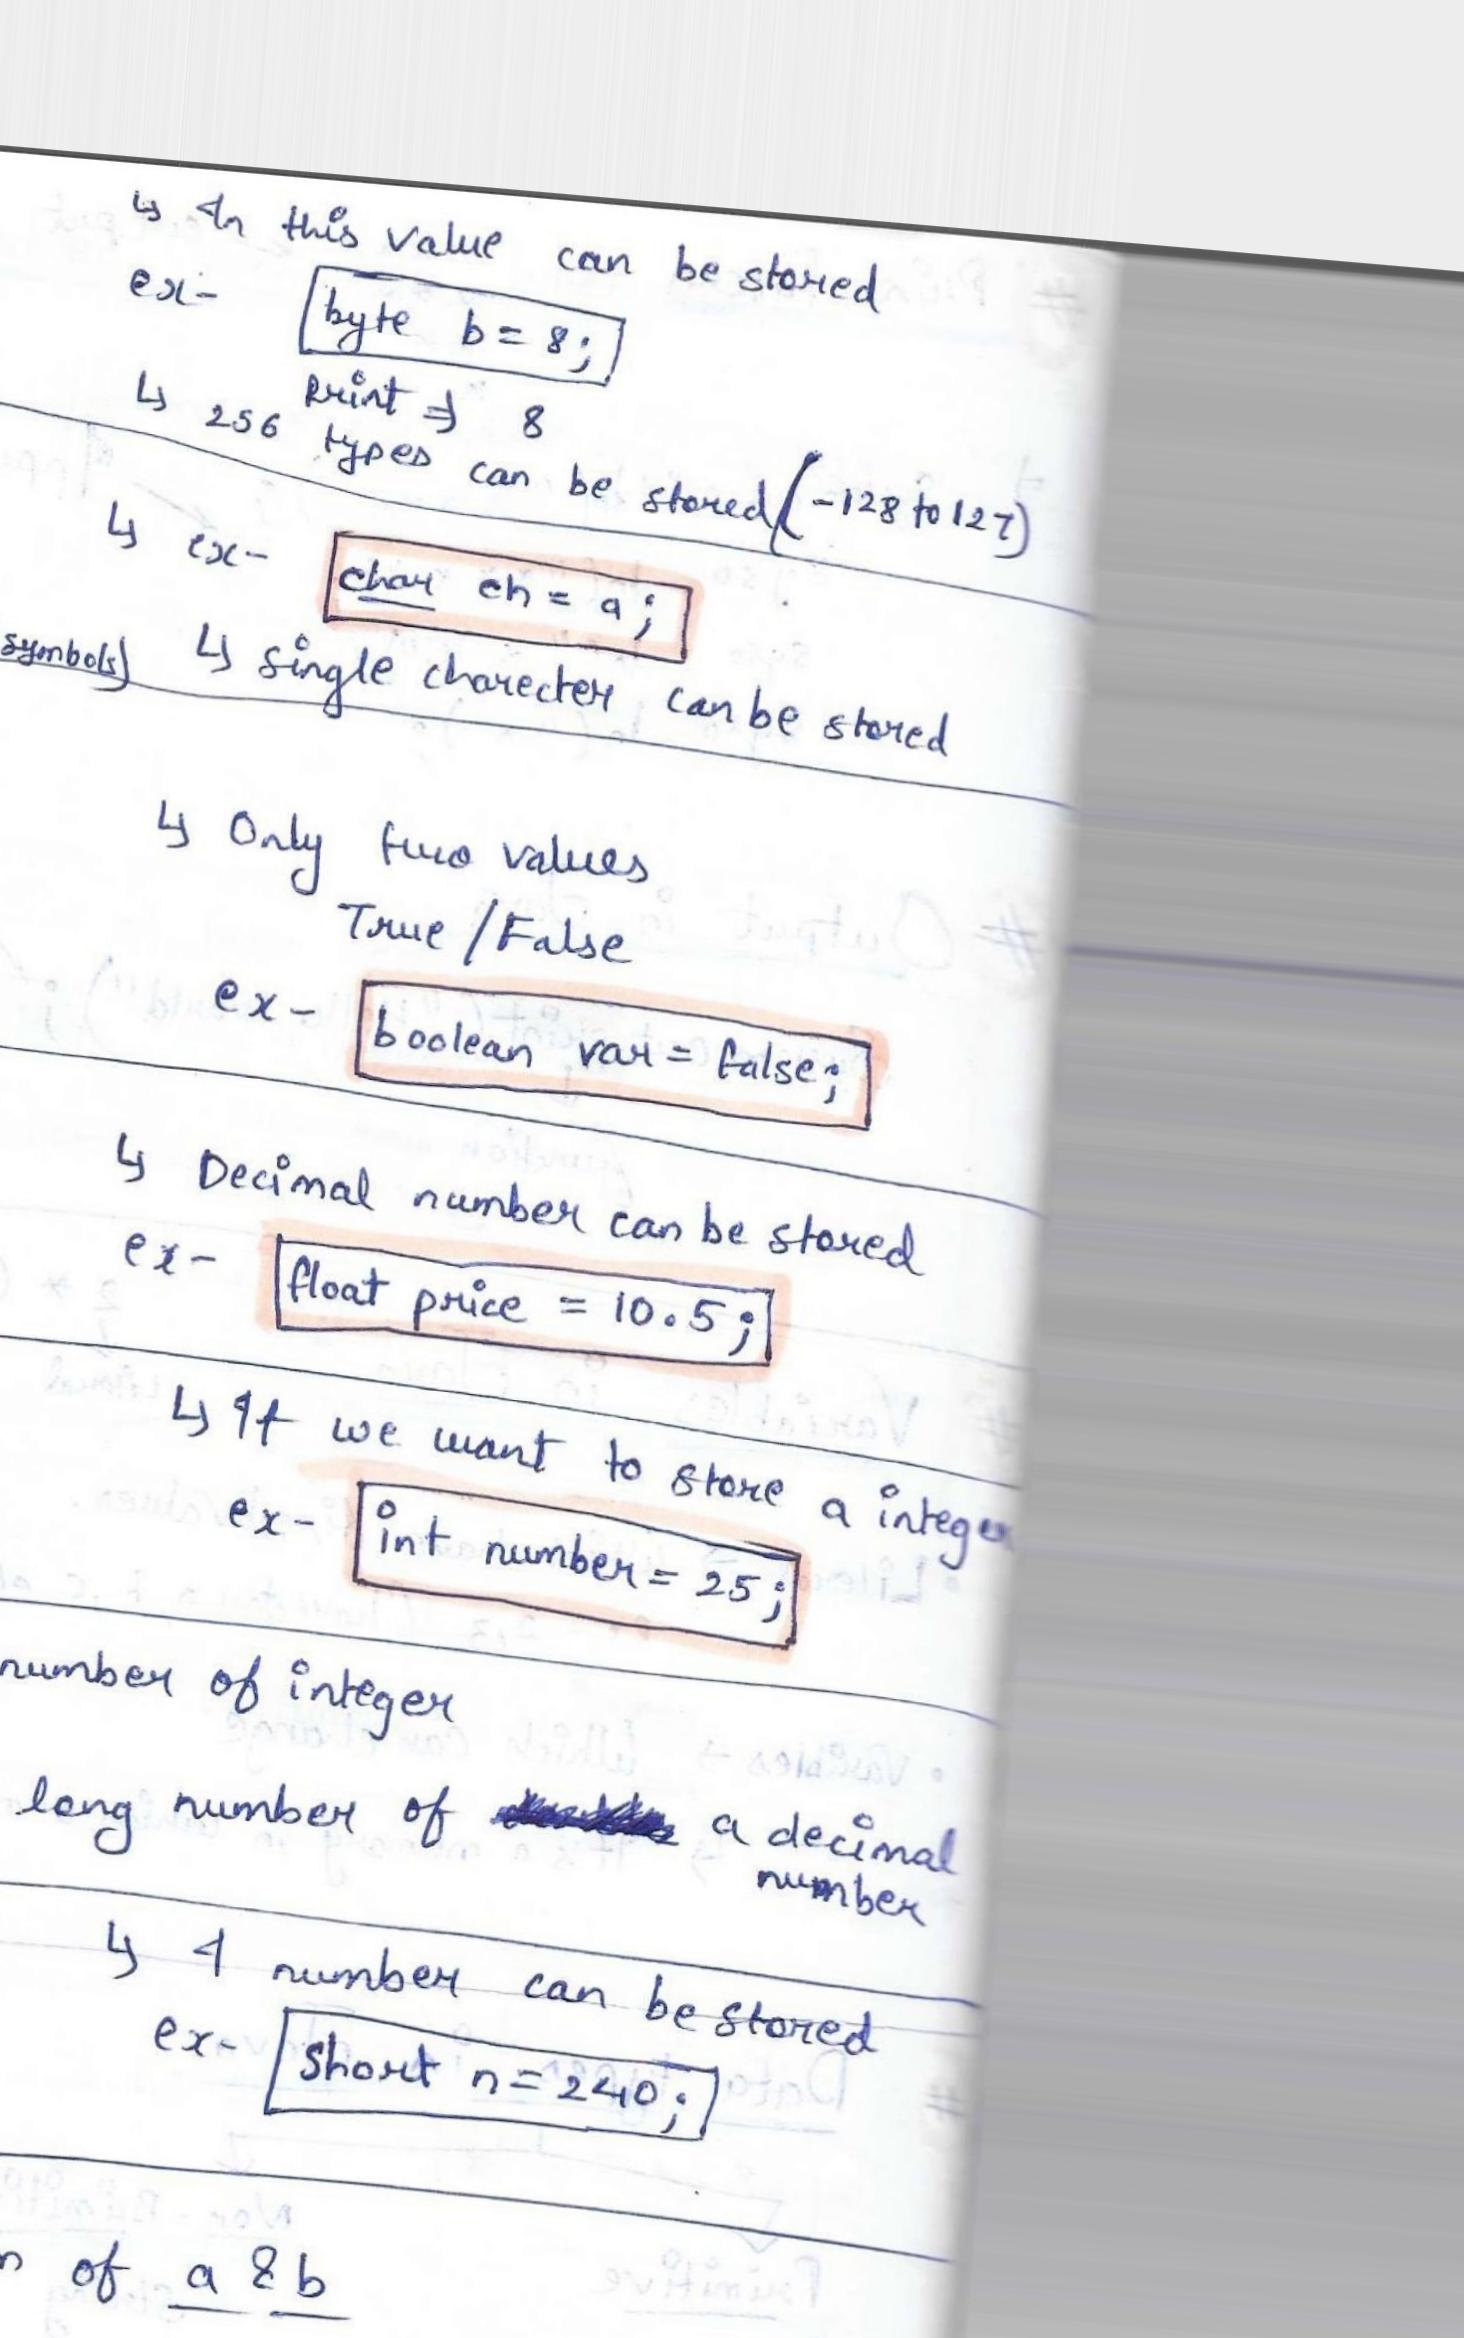 ↳ In this value can be stored
ex- byte b = 8;
print ⇒ 8
↳ 256 types can be stored (-128 to 127)
↳ ex- char ch = a;
symbols) ↳ single charecter can be stored
↳ Only two values
True / False
ex- boolean var = false;
↳ Decimal number can be stored
ex- float price = 10.5;
↳ If we want to store a integer
ex- int number = 25;
number of integer
long number of a decimal
number
↳ A number can be stored
ex- short n = 240;
of a & b